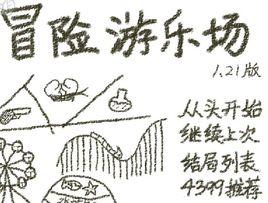 冒险游乐场
1.21版
从头开始
继续上次
结局列表
4399推荐